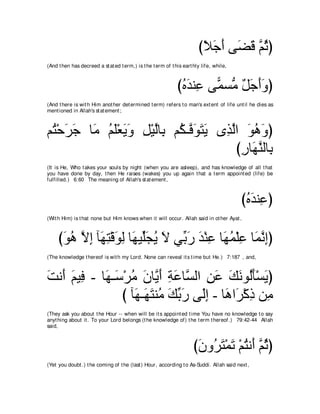 (ثُمَّ قَضَى أَجَلاً)
(And then has decreed a stated term,) is the term of this earthly life, while,
(وَأَجَلٌ مُّسَمًّى عِندَهُ)
(And there is with Him another determined term) refers to man's extent of life until he dies as
mentioned in Allah's statement;
(وَهُوَ الَّذِى يَتَوَفَّـكُم بِالَّيْلِ وَيَعْلَمُ مَا جَرَحْتُم
بِالنَّهَارِ)
(It is He, Who takes your souls by night (when you are asleep), and has knowledge of all that
you have done by day, then He raises (wakes) you up again that a term appointed (life) be
fulfilled.) 6:60 The meaning of Allah's statement,
(عِندَهُ)
(With Him) is that none but Him knows when it will occur. Allah said in other Ayat,
(إِنَّمَا عِلْمُهَا عِنْدَ رَبِّي لاَ يُجَلِّيهَا لِوَقْتِهَآ إِلاَّ هُوَ)
(The knowledge thereof is with my Lord. None can reveal its time but He.) 7:187 , and,
(يَسْأَلُونَكَ عَنِ السَّاعَةِ أَيَّانَ مُرْسَـهَا - فِيمَ أَنتَ
مِن ذِكْرَاهَا - إِلَى رَبِّكَ مُنتَهَـهَآ )
(They ask you about the Hour -- when will be its appointed time You have no knowledge to say
anything about it. To your Lord belongs (the knowledge of) the term thereof.) 79:42-44 Allah
said,
(ثُمَّ أَنتُمْ تَمْتَرُونَ)
(Yet you doubt.) the coming of the (last) Hour, according to As-Suddi. Allah said next,